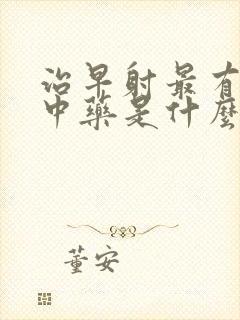 治早射最有
中藥是什麼
董安